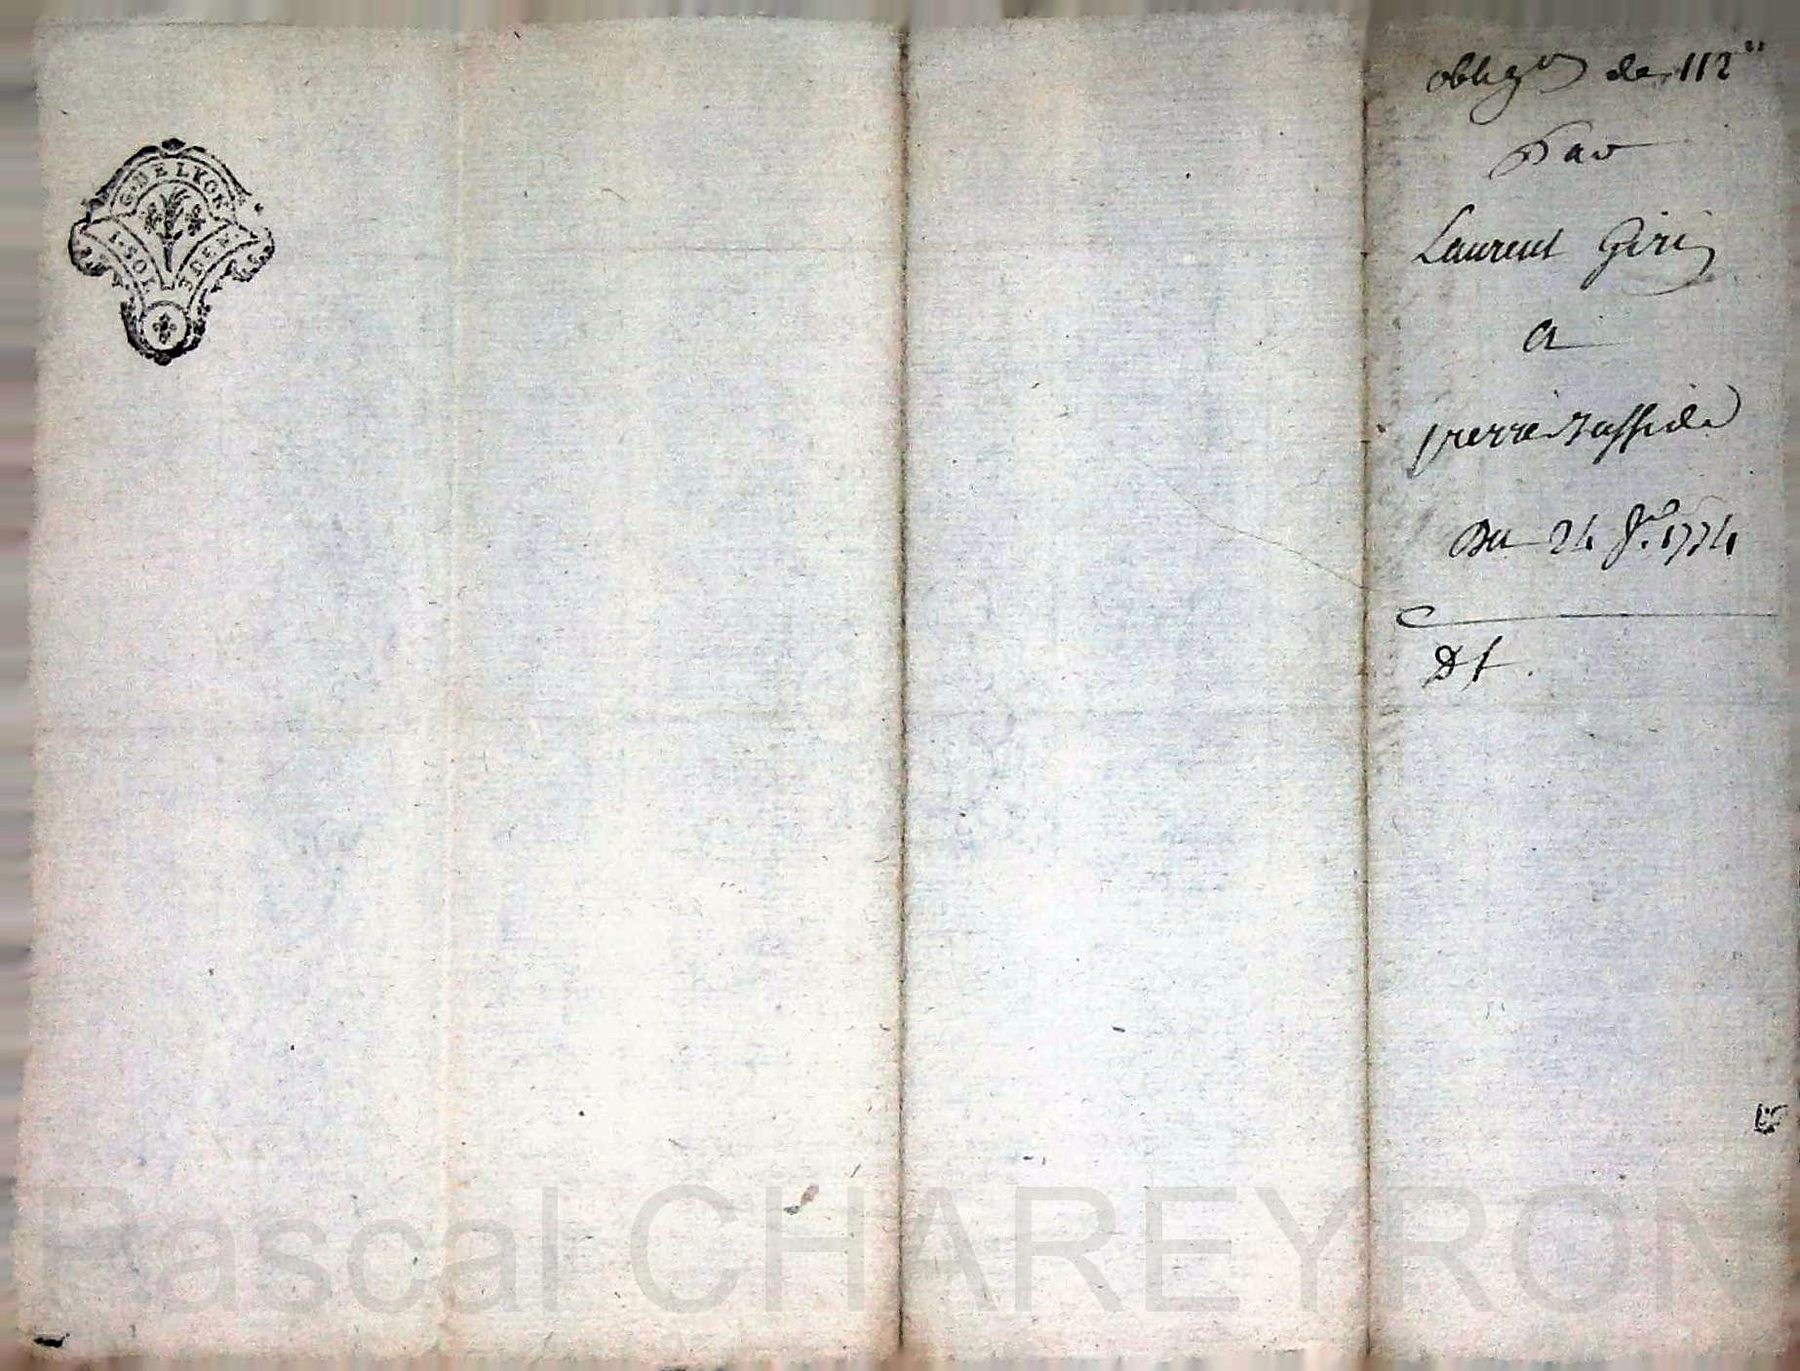 G. DE LYON
1. SOL
obligon de 112tt
Par
Laurent Giri
A
pierre Ruffide
Du 24 Jer. 1774
Dt.
Pascal CHAREYRON